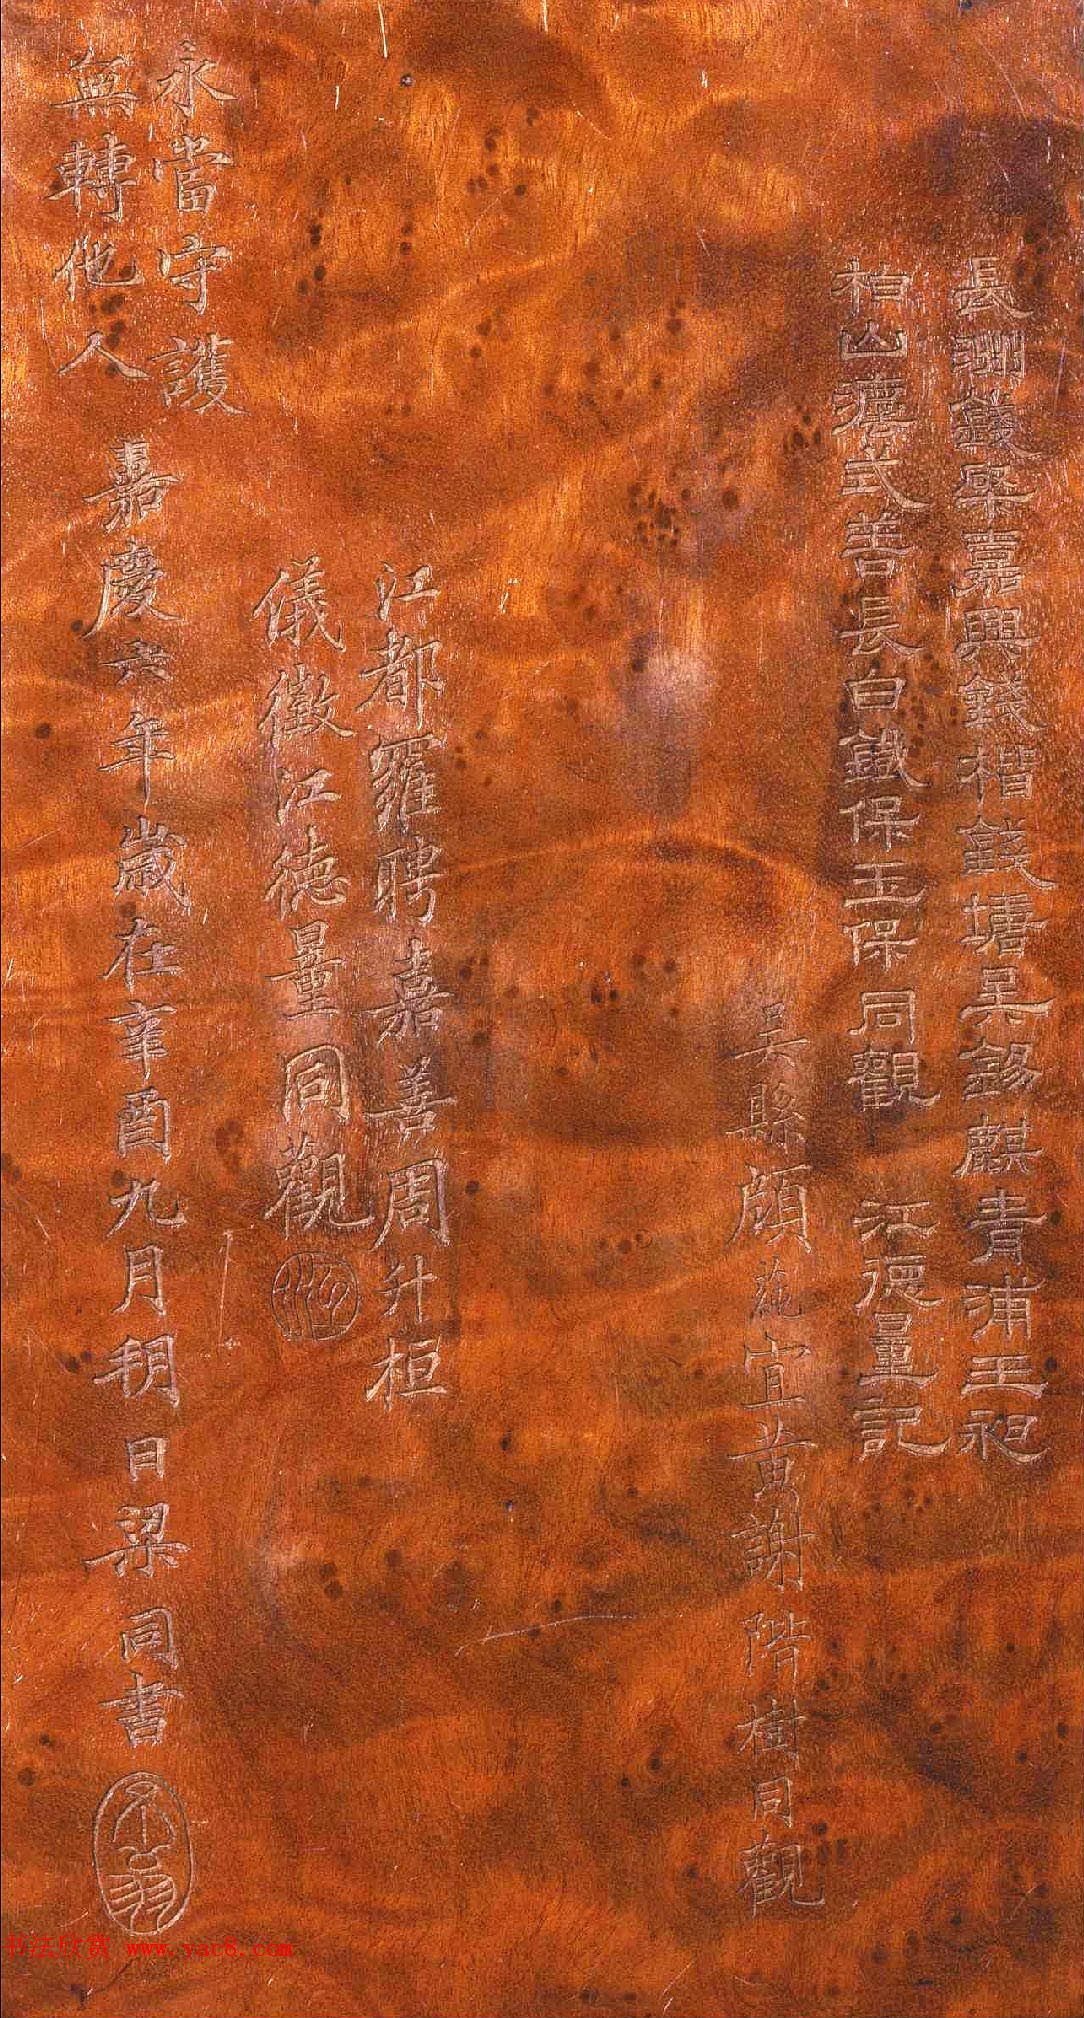 長洲錢棨嘉興錢楷錢塘吴錫麒青浦王昶
柏山瘧式善長白鐵保玉保同觀 江德量記
吴縣頋蒓宜黄謝階樹同觀
江都羅聘嘉善周升桓
儀徵江德量同觀
永當守護
無轉他人
嘉慶六年歲在辛酉九月朔日梁同書
不翁
书法欣赏 www.yac8.com